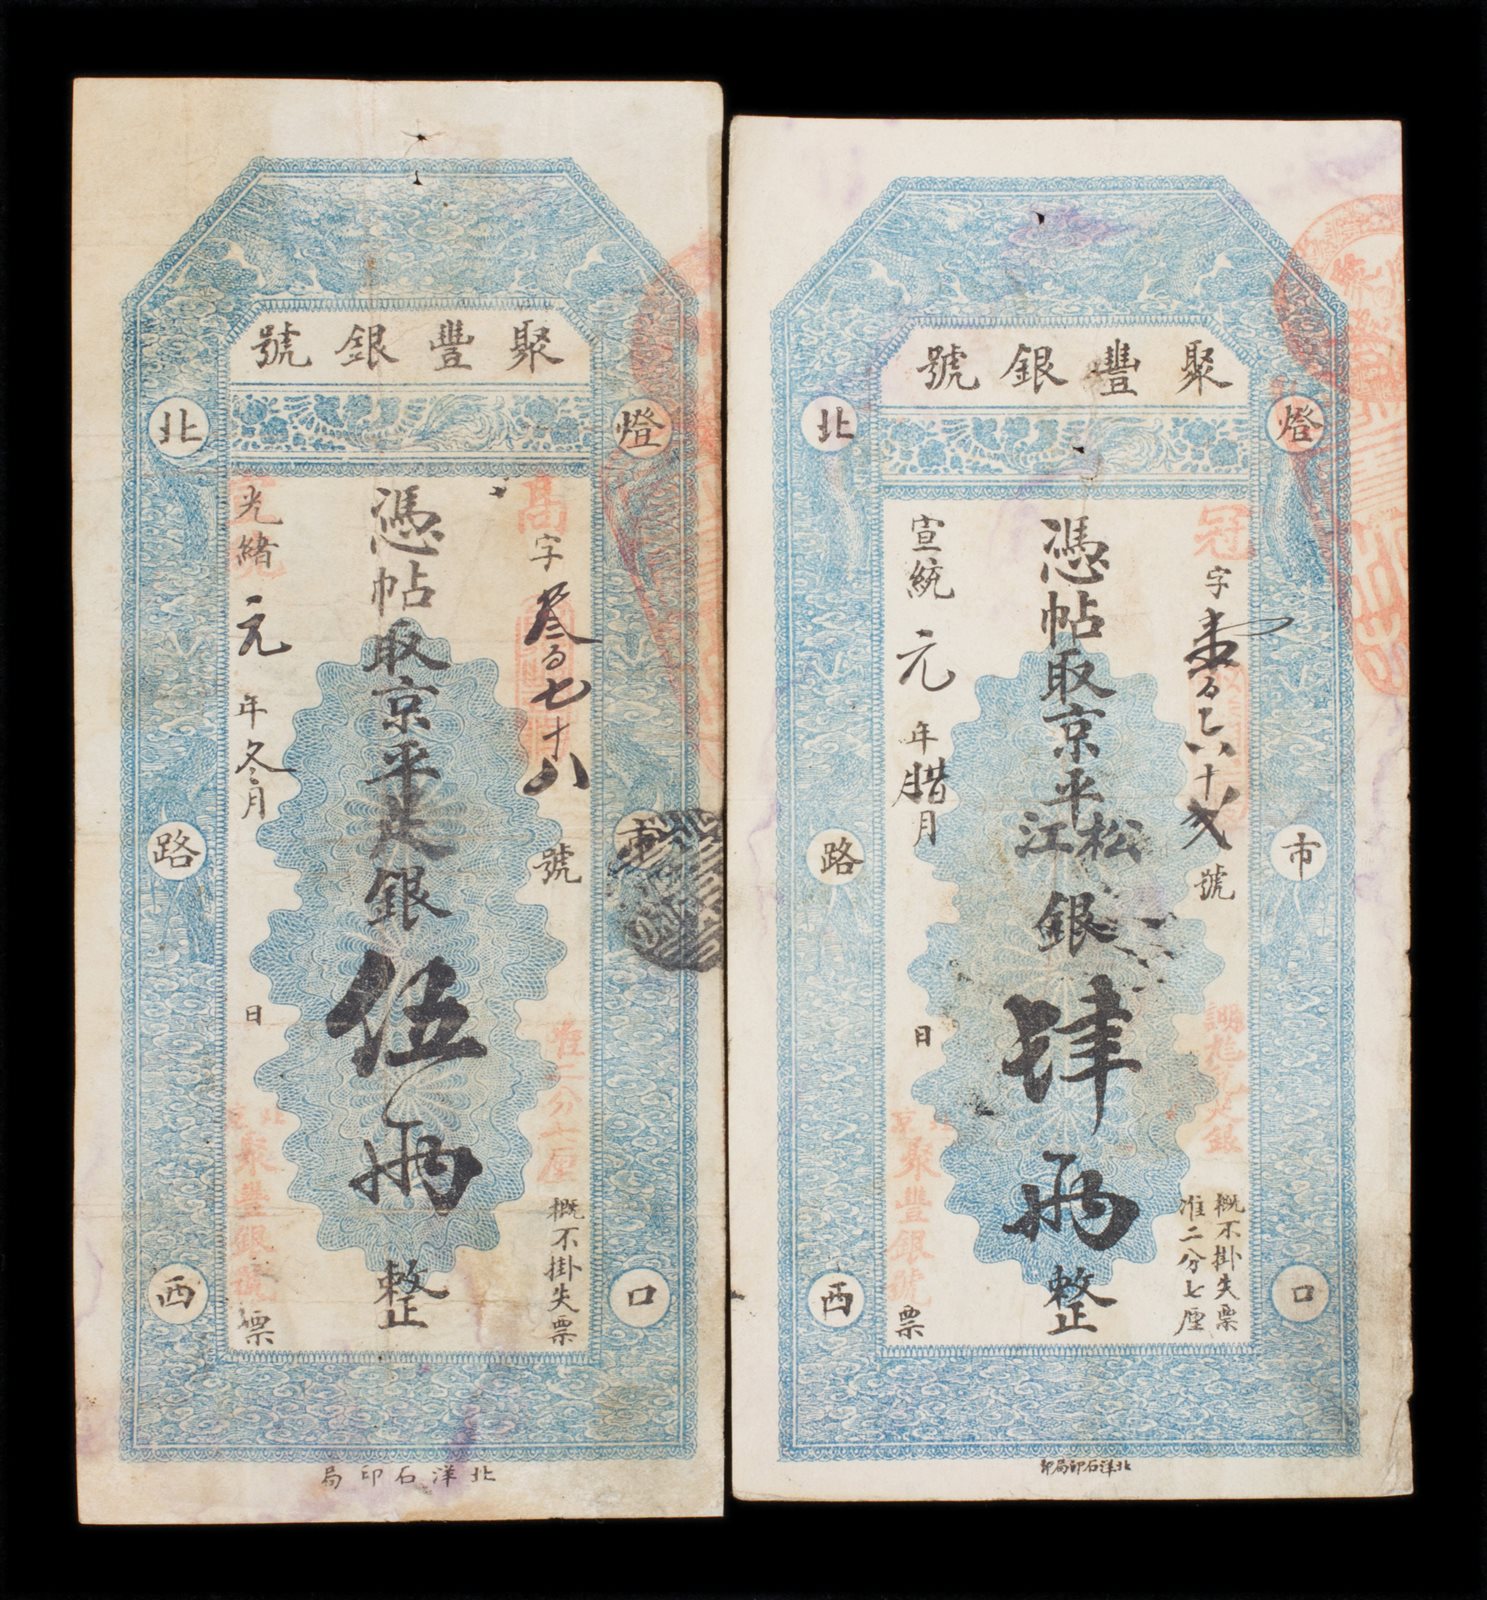 聚豐銀號
燈市口
北路西
高字叁百七十八號
概不掛失票
准二分七厘
憑帖取京平足銀伍兩整
光緒元年冬月 日
北京聚豐銀號
票
北洋石印局
聚豐銀號
燈市口
北路西
冠字壹百六十弍號
概不掛失票
准二分七厘
憑帖取京平松江銀肆兩整
宣統元年腊月 日
北京聚豐銀號
票
北洋石印局印